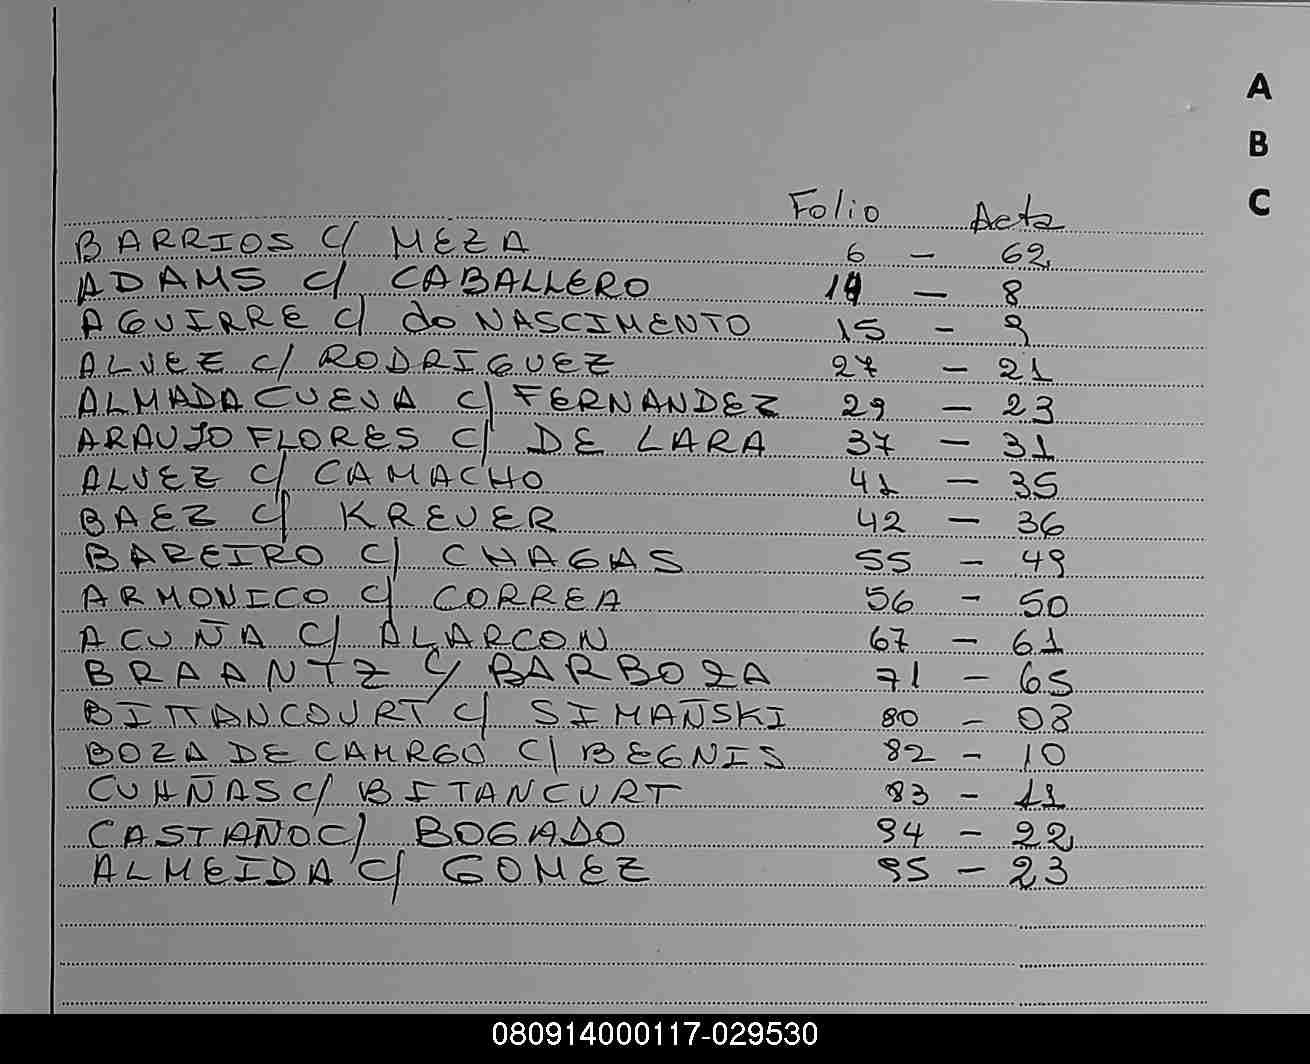 A
B
C
Folio Acta
BARRIOS C/ MEZA 6 - 62
ADAMS C/ CABALLERO 14 - 8
AGUIRRE C/ do NASCIMENTO 15 - 9
ALVEZ C/ RODRIGUEZ 27 - 21
ALMADA CUEVA C/ FERNANDEZ 29 - 23
ARAUJO FLORES C/ DE LARA 37 - 31
ALVEZ C/ CAMACHO 41 - 35
BAEZ C/ KREVER 42 - 36
BAREIRO C/ CHAGAS 55 - 49
ARMONICO C/ CORREA 56 - 50
ACUÑA C/ ALARCON 67 - 61
BRAANTZ C/ BARBOZA 71 - 65
BITTANCOURT C/ SIMAÑSKI 80 - 08
BOZA DE CAMRGO C/ BEGNIS 82 - 10
CUHÑAS C/ BITANCURT 83 - 11
CASTAÑO C/ BOGADO 94 - 22
ALMEIDA C/ GOMEZ 95 - 23
080914000117-029530